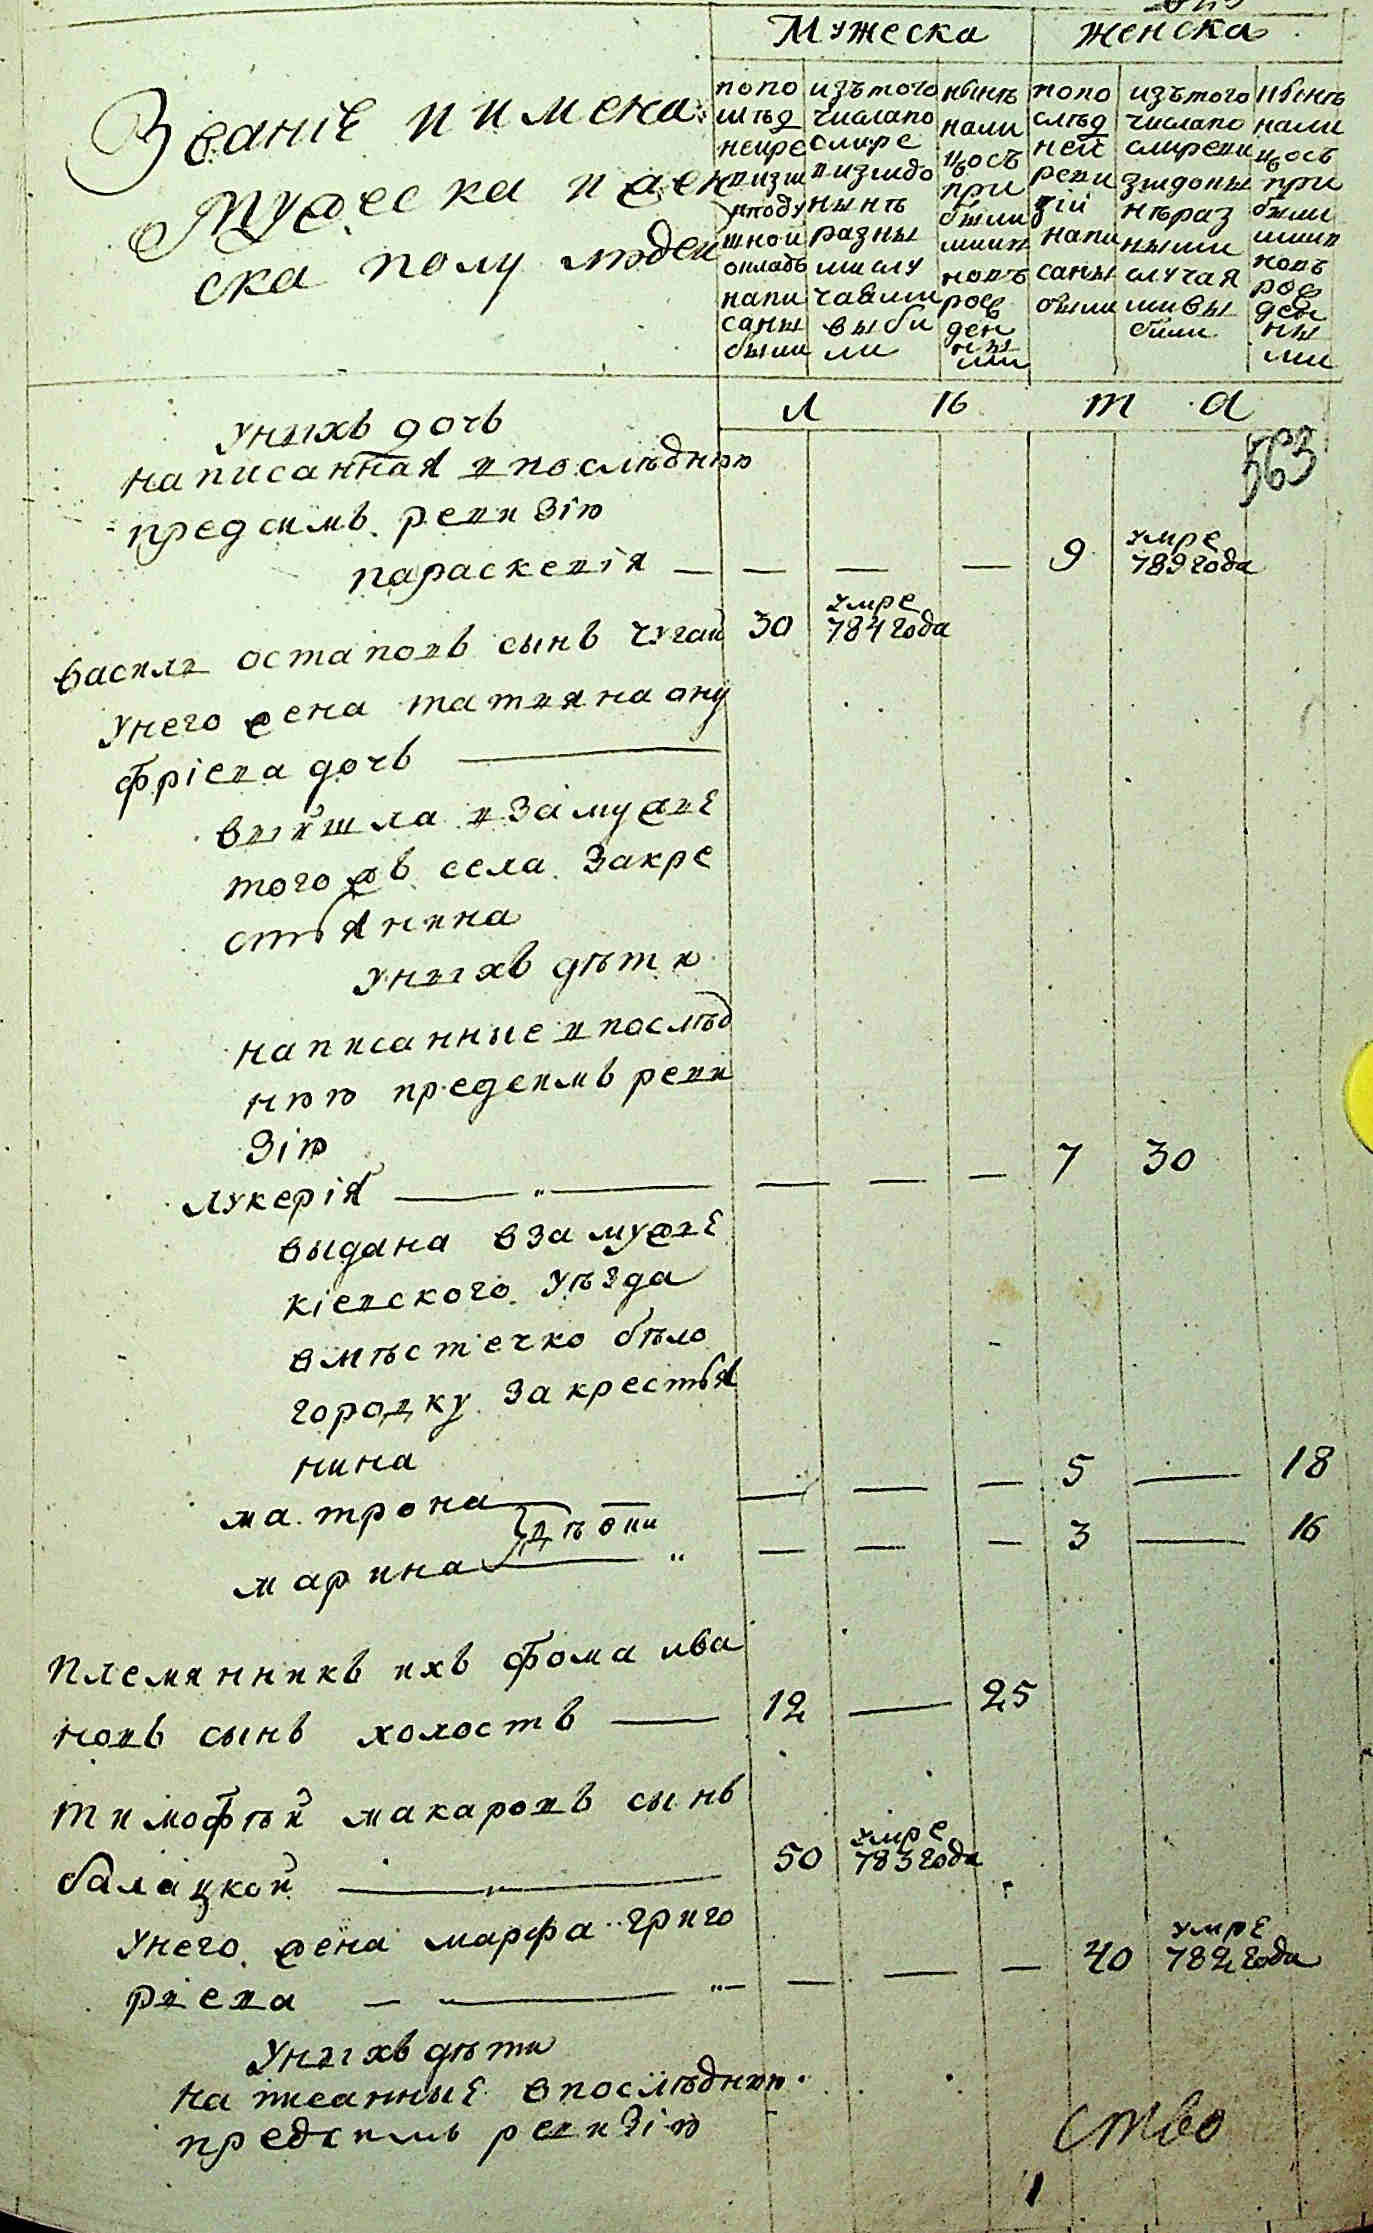 Мужеска женска
Званіе и имена
Мужеска и жен
ска полу людей
попо
слѣд
ней ре
визіи
в поду
шной
окладъ
напи
саны
были
изътого
числа по
сл ѣ ре
визіи до
нынѣ
разны
ми слу
чаями
выбы
ли
нынѣ
нали
цосъ
при
былими
и вновь
рож
ден
ны
ми
попо
слѣд
ней
реви
зіи
напи
саны
были
изътого
числа по
сл ѣ реви
зіи до ны
нѣ раз
ными
случая
ми вы
были
нынѣ
нали
цосъ
при
были
ми и
новъ
рож
ден
ны
ми
л ѣ т а
563
унихъ дочь
написанная впослѣднюю
предсимъ ревизію
параскевія — — — — 9 умре 789 года
василь остаповъ сынъ чугай 30 умре 784 года
унего жена татияна ону
фріева дочь
вийшла взамужъе
тогожъ села закре
стьянина
унихъ дѣти
написанные впослѣд
нюю предсимъ реви
зію
лукерія — — — — 7 30
выдана взамужъе
кіевского уѣзда
вмѣстечко бѣло
городку закрестья
нина
матрона — — — — 5 — 18
дѣвки
марина — — — — 3 — 16
племянникъ ихъ фома ива
новъ сынъ холостъ — 12 — 25
тимофѣй макаровъ сынъ
балацкой — 50 умре 783 года
унего жена марфа григо
риева — — — — 40 умре 782 года
унихъ дѣти
написанные впослѣднюю
предсимъ ревизію
ство